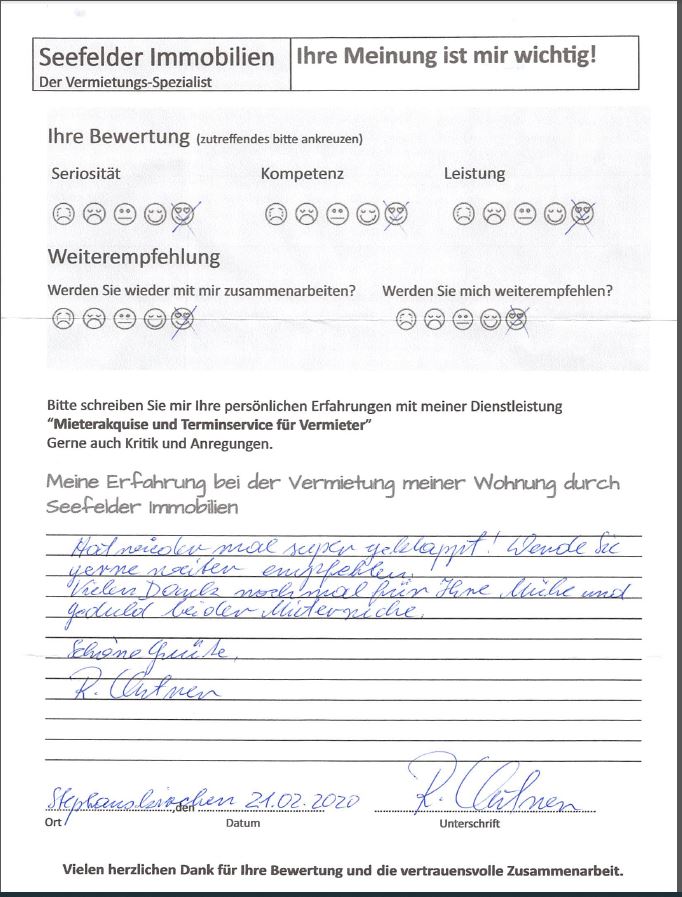 Seefelder Immobilien
Der Vermietungs-Spezialist
Ihre Meinung ist mir wichtig!
Ihre Bewertung (zutreffendes bitte ankreuzen)
Seriosität Kompetenz Leistung
Weiterempfehlung
Werden Sie wieder mit mir zusammenarbeiten? Werden Sie mich weiterempfehlen?
Bitte schreiben Sie mir Ihre persönlichen Erfahrungen mit meiner Dienstleistung
“Mieterakquise und Terminservice für Vermieter”
Gerne auch Kritik und Anregungen.
Meine Erfahrung bei der Vermietung meiner Wohnung durch
Seefelder Immobilien
Hat wieder mal super geklappt! Werde Sie
gerne weiter empfehlen.
Vielen Dank noch mal für Ihre Mühe und
geduld bei der Mietersuche.
Schöne Grüße,
R.
Stephanskirchen, den 21.02.2020
R.
Ort Datum Unterschrift
Vielen herzlichen Dank für Ihre Bewertung und die vertrauensvolle Zusammenarbeit.